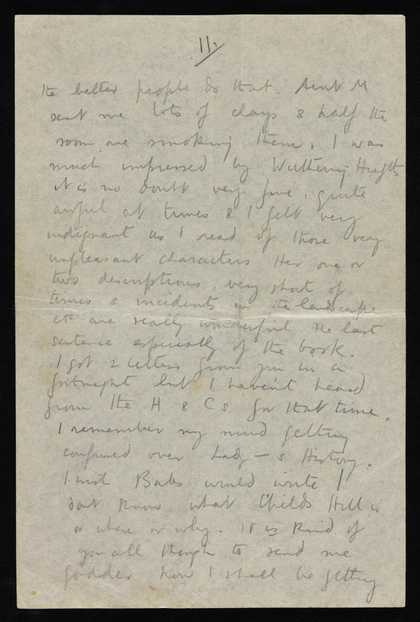 11.
the better people do that. Aunt M
sent me lots of clays & half the
room are smoking them. I was
much impressed by Wuthering Heights
it is no doubt very fine, quite
awful at times & I felt very
indignant as I read of those very
unpleasant characters. Her one or
two descriptions, very short of
times & incidents in the landscape
etc are really wonderful the last
sentence especially of the book.
I got 2 letters from you in a
fortnight but I haven't heard
from the H & Cs for that time.
I remember my mind getting
confused over Lady — s History.
I wish Babs would write I
dont know what Childs Hill is
or where or why. It is kind of
you all though to send me
fodder how I shall be getting